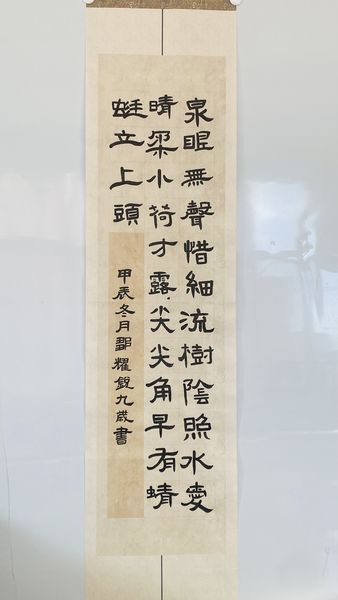 泉眼無聲惜細流樹陰照水愛
晴柔小荷才露尖尖角早有蜻
蜓立上頭
甲辰冬月鄒耀鋭九歲書